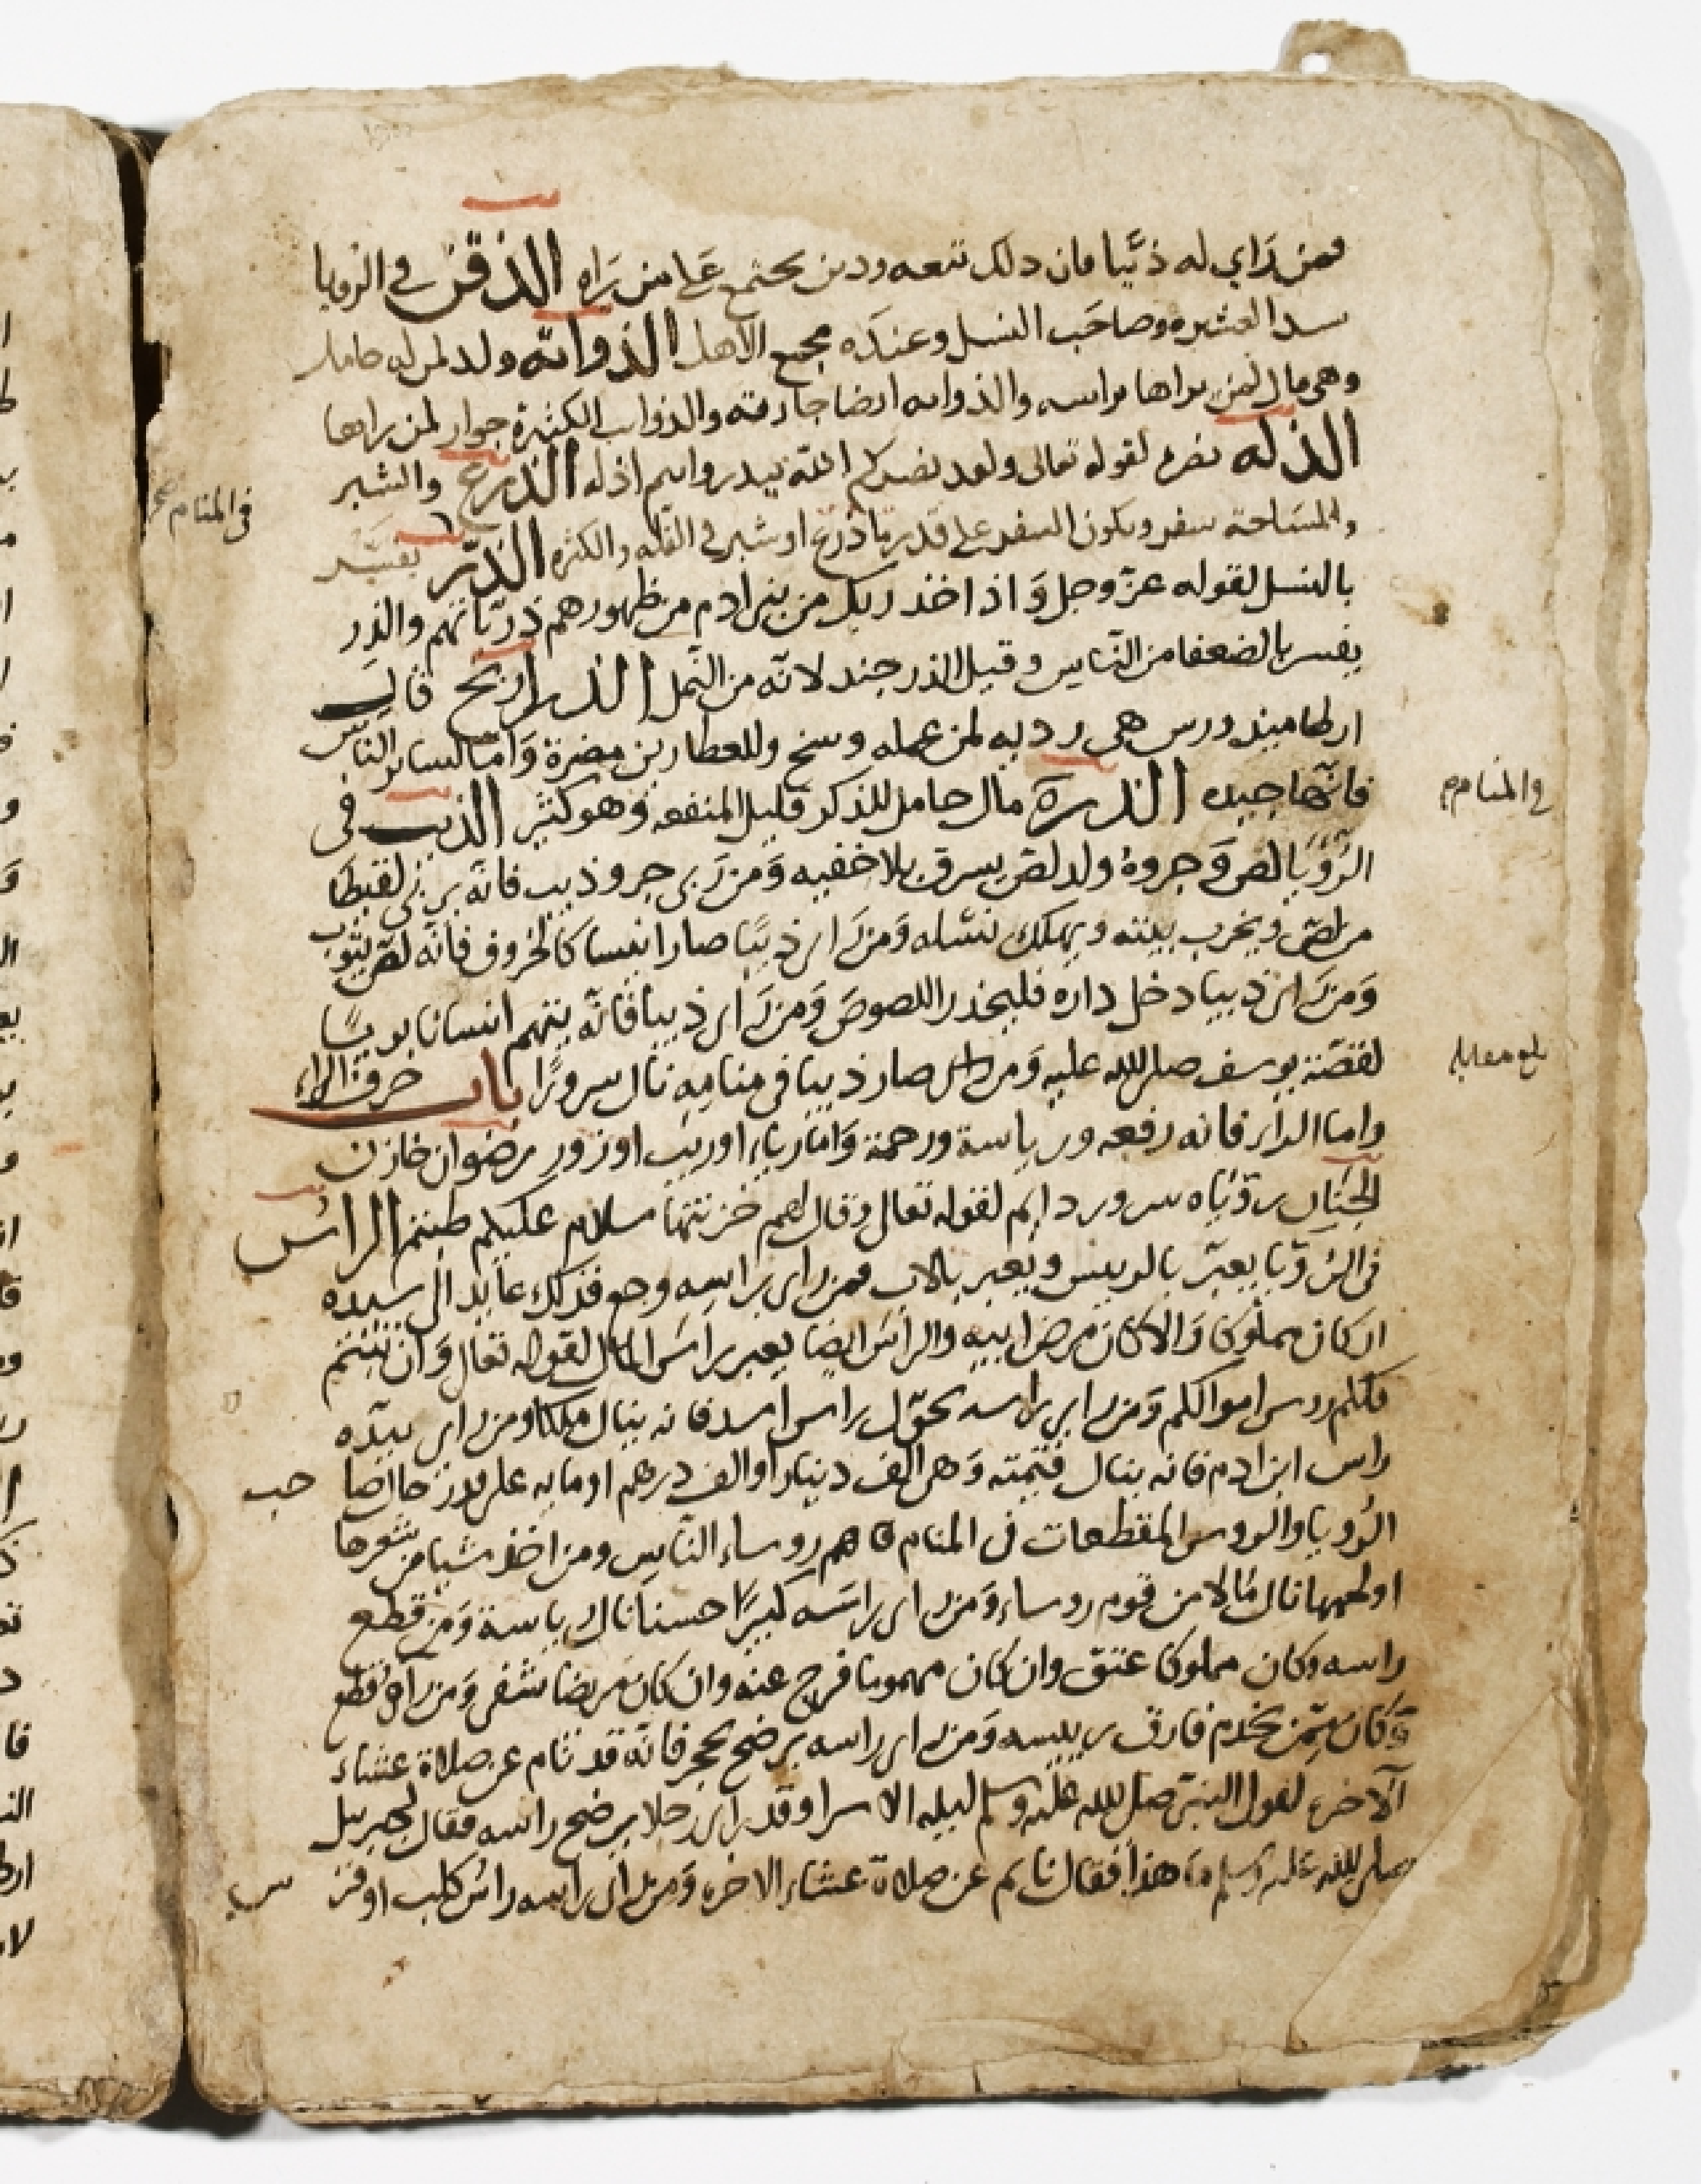 فمن راي له ذنبا فان ذلك تبعه ودين يجتمع على من راه الذقن في الرويا
سيد العشيره وصاحب النسل وعنده مجمع الاهل الذوابه ولد لمن له حامل
وهي مال لمن يراها براسه والذوابه ايضا جاريته والذوايب الكثيرة جوار لمن راها
الذله نصره لقوله تعالى ولقد نصركم الله ببدر وانتم اذله الذرع والشبر
والمساحة سفر ويكون السفر على قدر ما ذرع او شبر في القله والكثره الذر يفسر
بالنسل لقوله عز وجل واذ اخذ ربك من بني ادم من ظهورهم ذرياتهم والذر
يفسر بالضعفا من الناس وقيل الذر جند لانه من النمل الذراريح قال
ارطاميدورس هي رديه لمن عمله وسخ وللعطارين مضرة واما لساير الناس
فانها جيده الذرة مال حامل للذكر قليل المنفعه وهو كثير الذيب في
الرويا لص وجروه ولد لص يسرق بلا خفيه ومن راي جرو ذيب فانه يربي لقيطا
من لص ويخرب بيته ويهلك نسله ومن راى ذيبا صار انيسا كالخروف فانه لص يتوب
ومن راى ذيبا دخل داره فليحذر اللصوص ومن راى ذيبا فانه يتهم انسانا بريئا
لقصة يوسف صلى الله عليه ومن راى صار ذيبا في منامه نال سرورا باب حرف الراء
واما الراء فانه رفعه ورياسة ورحمة واما رياء او ريب او زور رضوان خازن
الجنان رؤياه سرور دايم لقوله تعالى وقال لهم خزنتها سلام عليكم طبتم الراس
في الرؤيا يعبر بالرييس ويعبر بالاب فمن راى براسه وجع فذلك عايد الى سيده
ان كان مملوكا والا كان مرض ابيه والراس ايضا يعبر براس المال لقوله تعالى وان تبتم
فلكم روس اموالكم ومن راى براسه تحول راس اسد فانه ينال ملكا ومن راى بيده
راس ابن ادم فانه ينال قيمته وهي الف دينار او الف درهم او مايه على قدر حال صا حب
الرويا والروس المقطعات في المنام هم روساء الناس ومن اخذ شيا من شعرها
او لحمها نال مالا من قوم روساء ومن راى راسه كبيرا حسنا نال رياسة ومن قطع
راسه وكان مملوكا عتق وان كان مهموما فرج عنه وان كان مريضا شفى ومن راه قطع
وكان ممن يخدم فارق رييسه ومن راى راسه يرضح بحجر فانه قد نام عن صلاة عشاء
الاخره لقول النبي صلى الله عليه وسلم ليله الاسرا وقد راى رجلا يرضح راسه فقال لجبريل
صلى الله عليه وسلم هذا فقال نايم عن صلاة عشاء الاخره ومن راى راسه راس كلب او فر س
في المنام صح
في المنام
بلغ مقابله